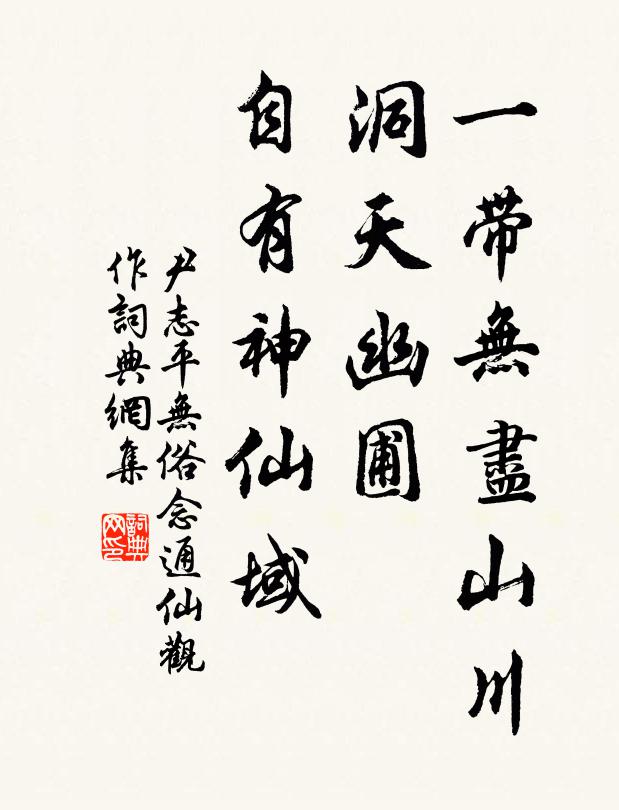 一带無盡山川
洞天幽圃
自有神仙域
尹志平無俗念通仙觀
作詞典網集
詞典
网印